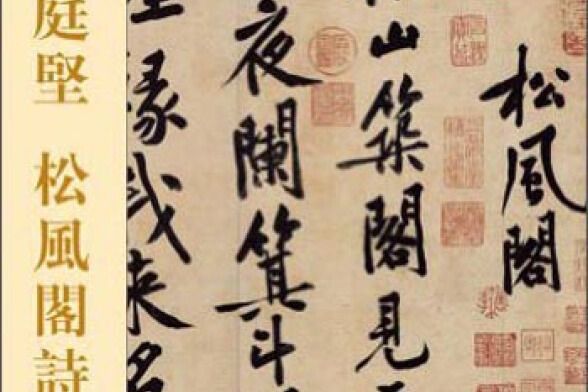 松風閣
山築閣見
夜闌箕斗
椽我來名
庭堅 松風閣詩